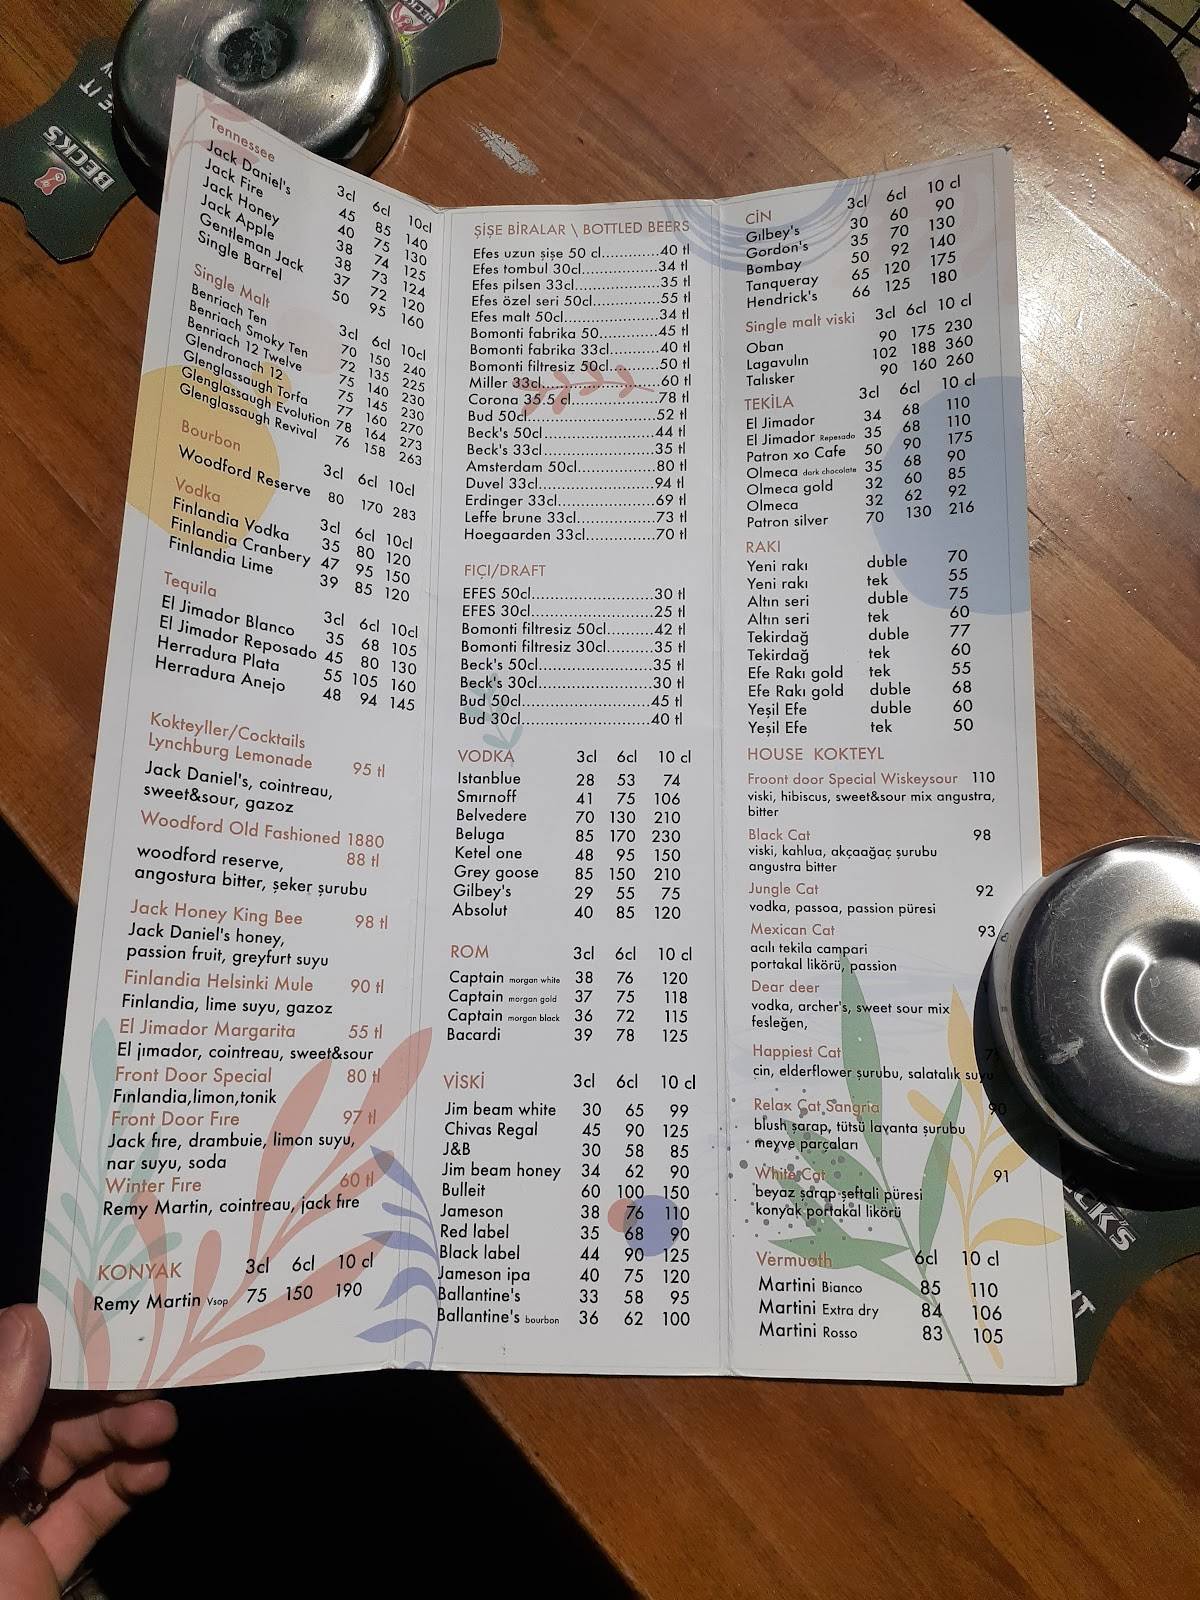 BECK'S
BECK'S
Tennessee
3cl 6cl 10cl
Jack Daniel's 45 85 140
Jack Fire 40 75 130
Jack Honey 38 74 125
Jack Apple 38 73 124
Gentleman Jack 37 72 120
Single Barrel 50 95 160
Single Malt 3cl 6cl 10cl
Benriach Ten 70 150 240
Benriach Smoky Ten 72 135 225
Benriach 12 Twelve 75 140 230
Glendronach 12 75 145 230
Glenglassaugh Torfa 77 160 270
Glenglassaugh Evolution 78 164 273
Glenglassaugh Revival 76 158 263
Bourbon 3cl 6cl 10cl
Woodford Reserve 80 170 283
Vodka 3cl 6cl 10cl
Finlandia Vodka 35 80 120
Finlandia Cranbery 47 95 150
Finlandia Lime 39 85 120
Tequila 3cl 6cl 10cl
El Jimador Blanco 35 68 105
El Jimador Reposado 45 80 130
Herradura Plata 55 105 160
Herradura Anejo 48 94 145
Kokteyller/Cocktails
Lynchburg Lemonade 95 tl
Jack Daniel's, cointreau,
sweet&sour, gazoz
Woodford Old Fashioned 1880
88 tl
woodford reserve,
angostura bitter, şeker şurubu
Jack Honey King Bee 98 tl
Jack Daniel's honey,
passion fruit, greyfurt suyu
Finlandia Helsinki Mule 90 tl
Finlandia, lime suyu, gazoz
El Jimador Margarita 55 tl
El jımador, cointreau, sweet&sour
Front Door Special 80 tl
Fınlandia,limon,tonik
Front Door Fıre 97 tl
Jack fıre, drambuie, limon suyu,
nar suyu, soda
Winter Fıre 60 tl
Remy Martin, cointreau, jack fıre
KONYAK 3cl 6cl 10 cl
Remy Martin Vsop 75 150 190
ŞİŞE BİRALAR \ BOTTLED BEERS
Efes uzun şişe 50 cl.............40 tl
Efes tombul 30cl.................34 tl
Efes pilsen 33cl...................35 tl
Efes özel seri 50cl...............55 tl
Efes malt 50cl.....................34 tl
Bomonti fabrika 50.............45 tl
Bomonti fabrika 33cl...........40 tl
Bomonti filtresiz 50cl...........50 tl
Miller 33cl..........................60 tl
Corona 35.5 cl...................78 tl
Bud 50cl............................52 tl
Beck's 50cl.........................44 tl
Beck's 33cl.........................35 tl
Amsterdam 50cl.................80 tl
Duvel 33cl..........................94 tl
Erdinger 33cl.....................69 tl
Leffe brune 33cl..................73 tl
Hoegaarden 33cl................70 tl
FIÇI/DRAFT
EFES 50cl...........................30 tl
EFES 30cl...........................25 tl
Bomonti filtresiz 50cl..........42 tl
Bomonti filtresiz 30cl..........35 tl
Beck's 50cl.........................35 tl
Beck's 30cl.........................30 tl
Bud 50cl............................45 tl
Bud 30cl............................40 tl
VODKA 3cl 6cl 10 cl
Istanblue 28 53 74
Smırnoff 41 75 106
Belvedere 70 130 210
Beluga 85 170 230
Ketel one 48 95 150
Grey goose 85 150 210
Gilbey's 29 55 75
Absolut 40 85 120
ROM 3cl 6cl 10 cl
Captain morgan white 38 76 120
Captain morgan gold 37 75 118
Captain morgan black 36 72 115
Bacardi 39 78 125
VİSKİ 3cl 6cl 10 cl
Jim beam white 30 65 99
Chivas Regal 45 90 125
J&B 30 58 85
Jim beam honey 34 62 90
Bulleit 60 100 150
Jameson 38 76 110
Red label 35 68 90
Black label 44 90 125
Jameson ipa 40 75 120
Ballantine's 33 58 95
Ballantine's bourbon 36 62 100
CİN 3cl 6cl 10 cl
Gilbey's 30 60 90
Gordon's 35 70 130
Bombay 50 92 140
Tanqueray 65 120 175
Hendrick's 66 125 180
Single malt viski 3cl 6cl 10 cl
Oban 90 175 230
Lagavulın 102 188 360
Talısker 90 160 260
TEKİLA 3cl 6cl 10 cl
El Jimador 34 68 110
El Jimador Repesado 35 68 110
Patron xo Cafe 50 90 175
Olmeca dark chocolate 35 68 90
Olmeca gold 32 60 85
Olmeca 32 62 92
Patron silver 70 130 216
RAKI
Yeni rakı duble 70
Yeni rakı tek 55
Altın seri duble 75
Altın seri tek 60
Tekirdağ duble 77
Tekirdağ tek 60
Efe Rakı gold tek 55
Efe Rakı gold duble 68
Yeşil Efe duble 60
Yeşil Efe tek 50
HOUSE KOKTEYL
Froont door Special Wiskeysour 110
viski, hibiscus, sweet&sour mix angustra,
bitter
Black Cat 98
viski, kahlua, akçaağaç şurubu
angustra bitter
Jungle Cat 92
vodka, passoa, passion püresi
Mexican Cat 93
acılı tekila campari
portakal likörü, passion
Dear deer
vodka, archer's, sweet sour mix
fesleğen,
Happiest Cat
cin, elderflower şurubu, salatalık suyu
Relax Cat Sangria 90
blush şarap, tütsü lavanta şurubu
meyve parçaları
White Cat 91
beyaz şarap şeftali püresi
konyak portakal likörü
Vermuoth 6cl 10 cl
Martini Bianco 85 110
Martini Extra dry 84 106
Martini Rosso 83 105